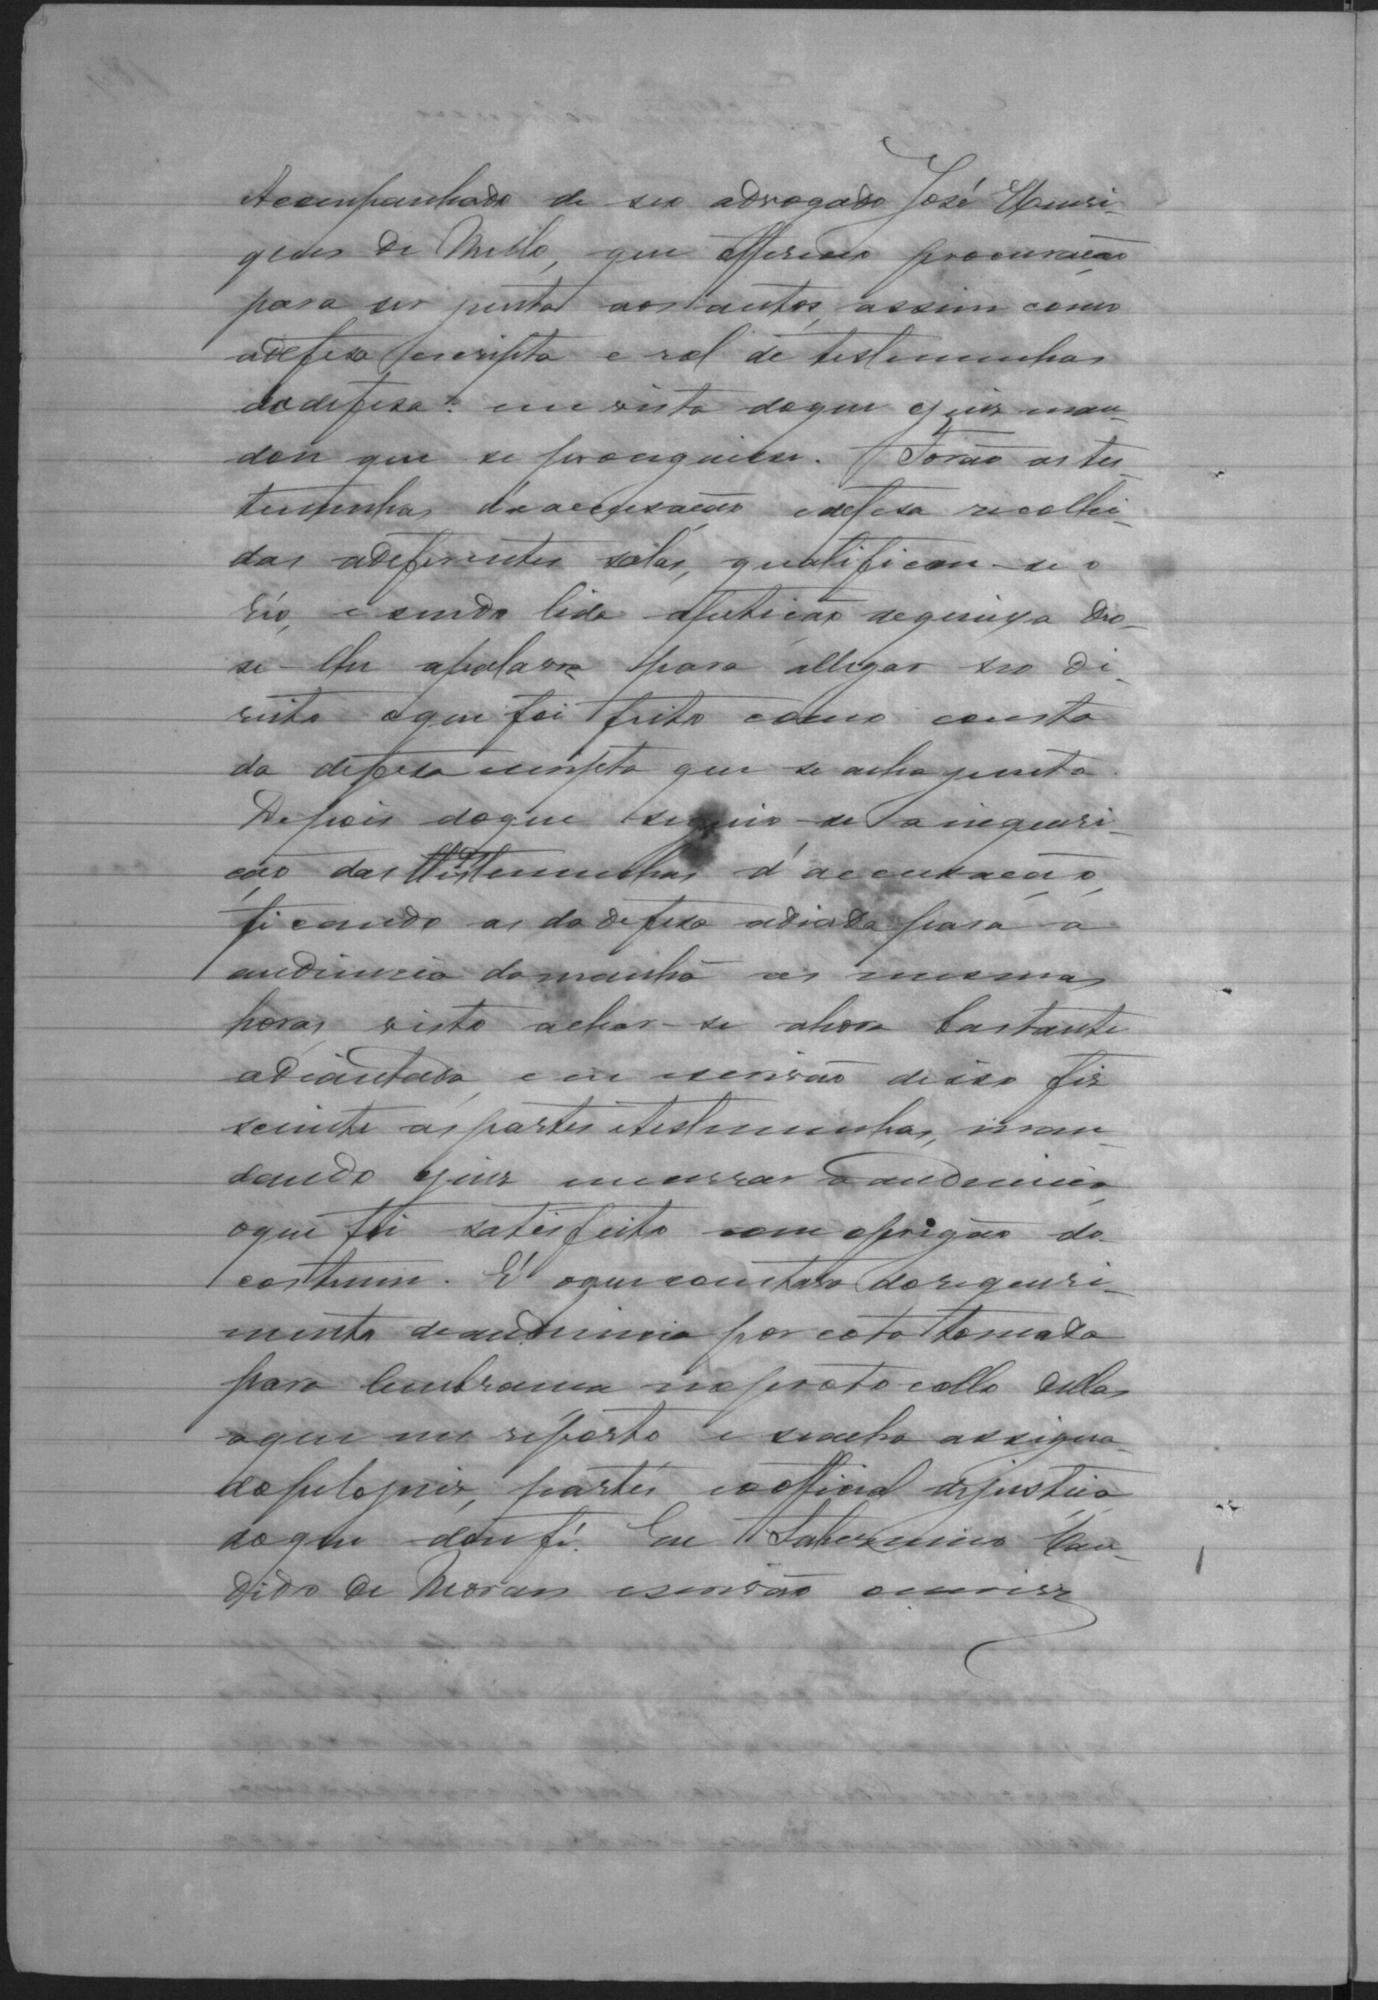 Acompanhado de seo advogado José Henri-
ques de Mello, que offereceo procuração
para ser junta aos autos, assim como
adefesa escripta e rol de testemunhas
dadefesa: em vista doque ojuiz man-
dou que se proseguisse. Forão as tes-
temunhas d'aaccusação edefesa recolhi-
das adeferentes salas, qualificou-se o
réo, e sendo lida apetição dequeixa deo-
se-lhe apalavra para allegar seo di-
reito oque foi feito como consta
da defesa escripta que se acha junta.
Depois doque seguio-se a inqueri-
ção das testemunhas d'accusação,
ficando as da defesa adiada para a
audiencia damanhã as mesmas
horas, visto achar-se ahora bastante
adiantada, e eu escrivão disso fiz
sciente as partes etestemunhas, man-
dando ojuiz encerrar a audiencia,
oque foi satisfeito com opregão do
costume. É oque constava dorequeri-
mento deaudiencia por cota tomada
para lembrança noprotocollo dellas
aque me reporto e seacha assigna-
dopelojuiz, partes eoofficial dejustiça
doque dou fé. Eu Can-
dido de Moraes escrivão oescrevi